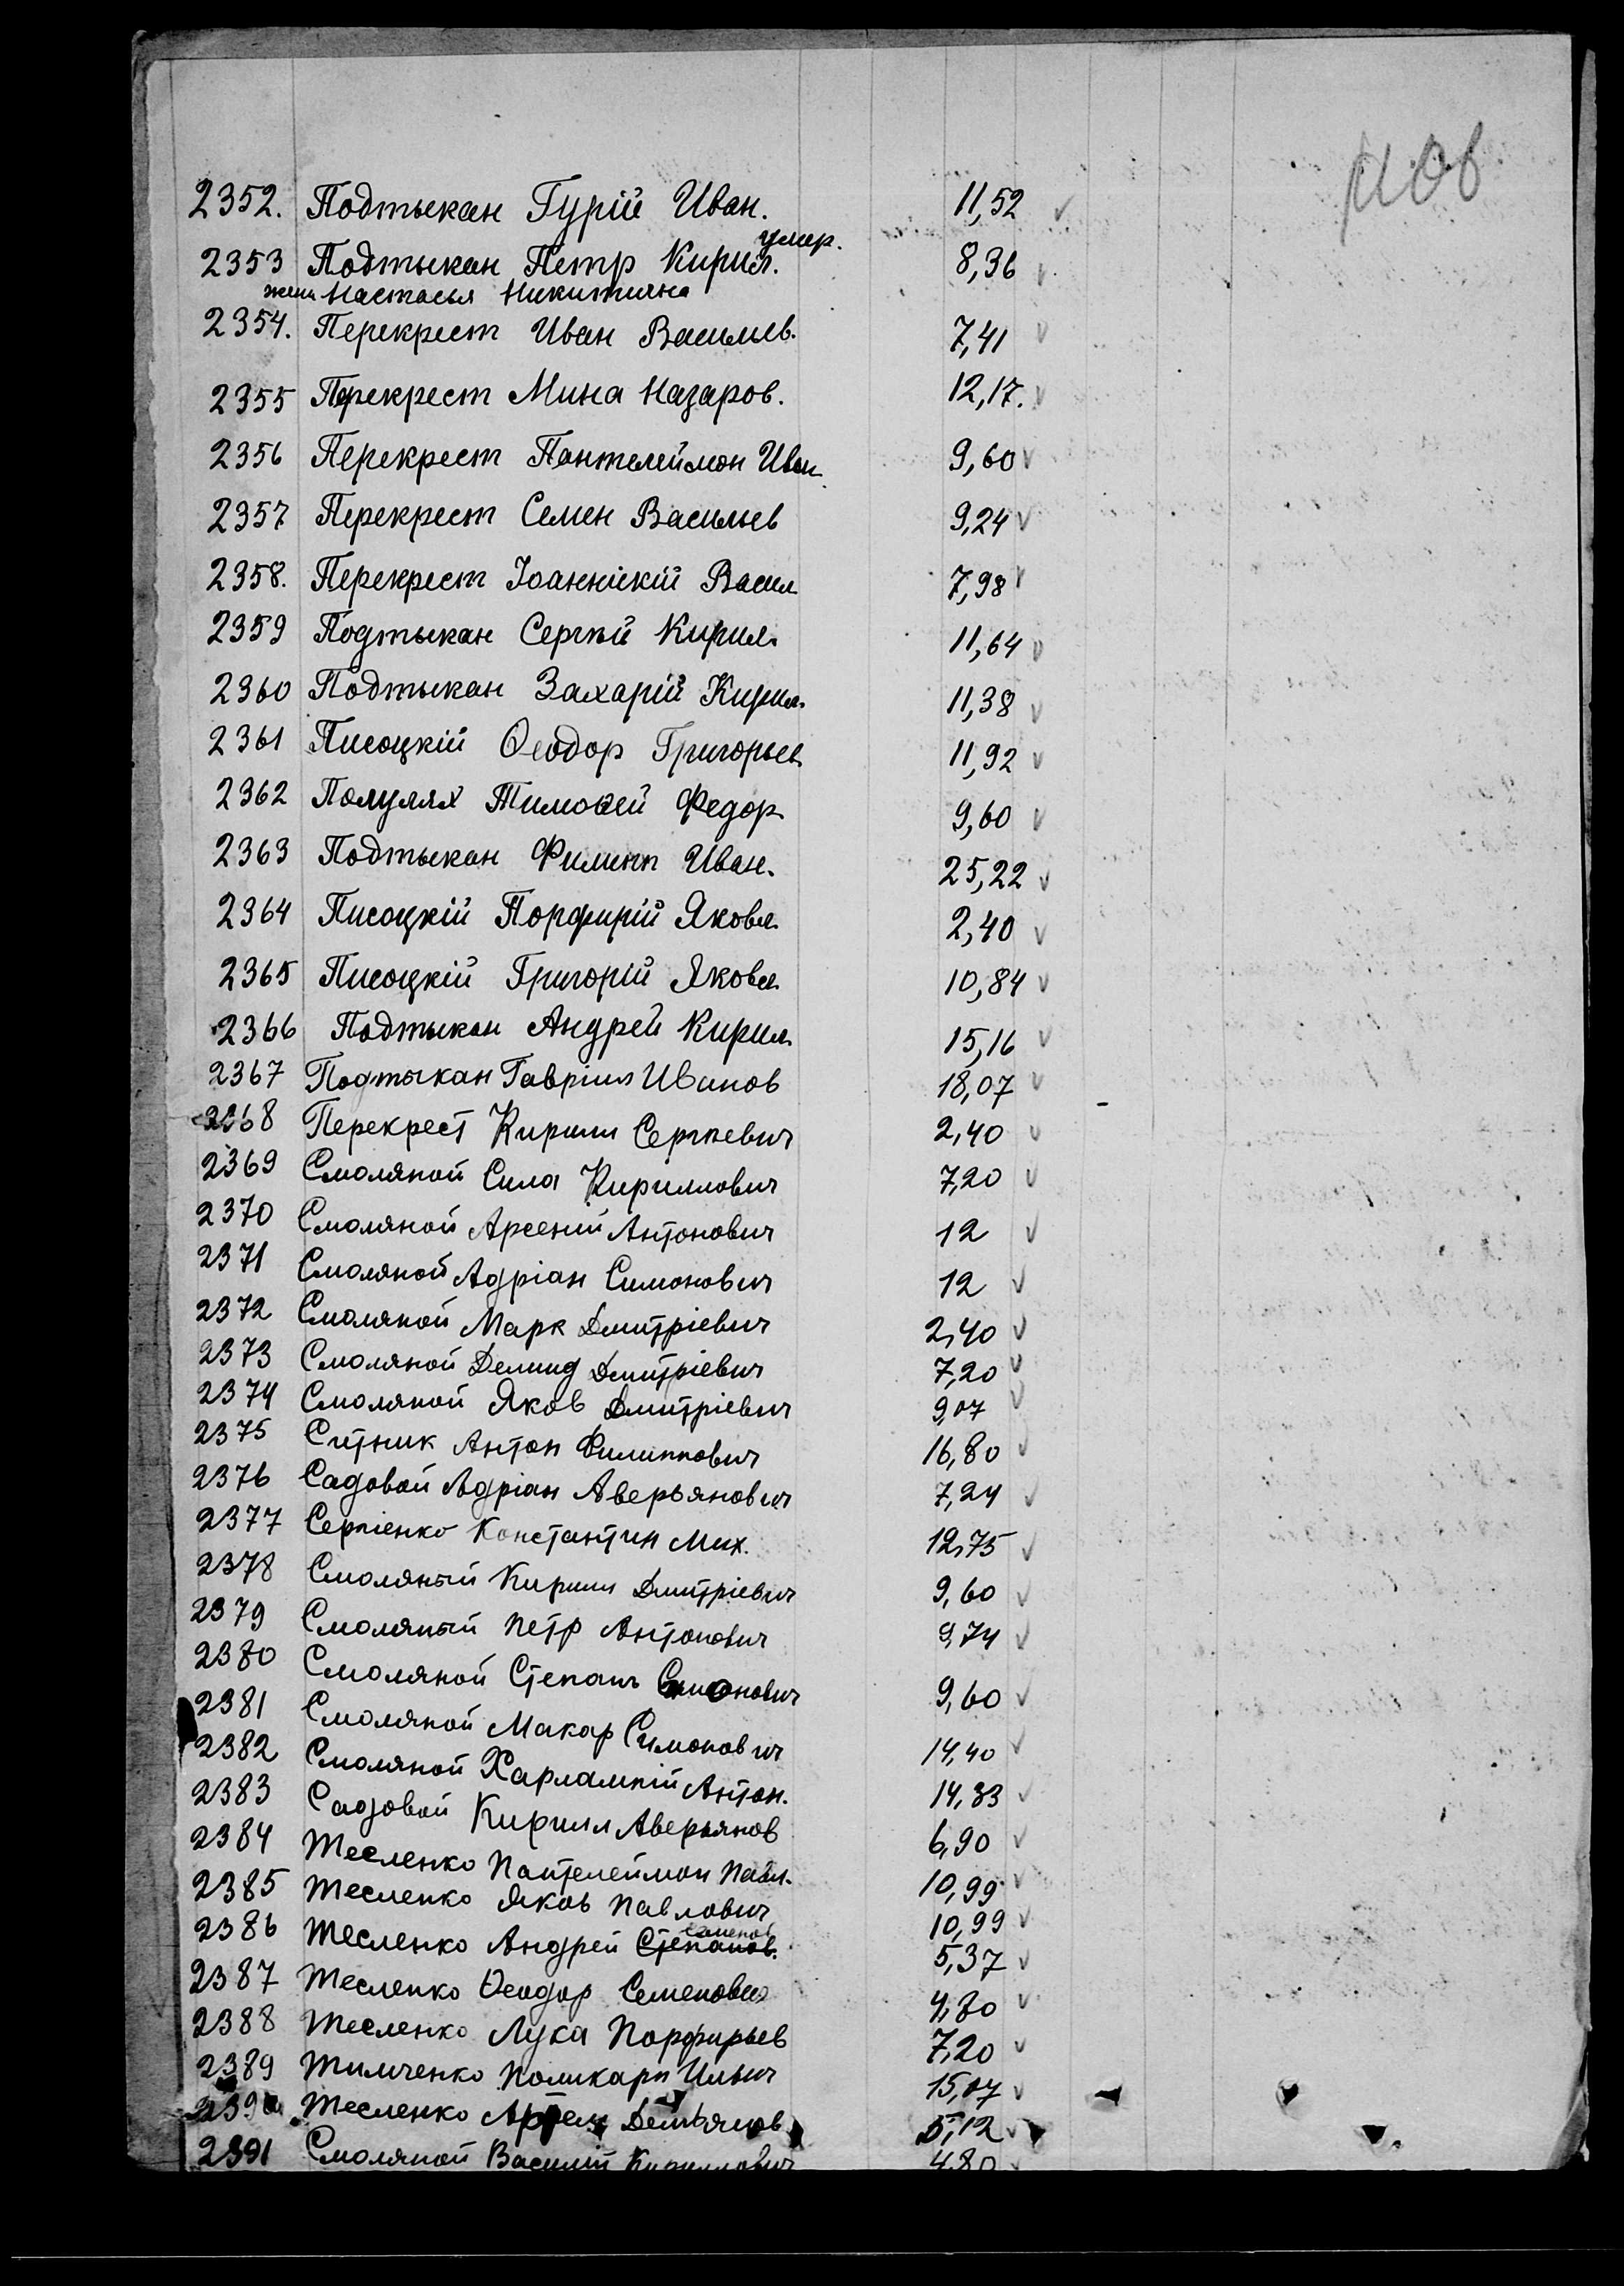 2352. Подтыкан Гурій Иван. 11,52 ✓
умер.
2353 Подтыкан Петр Кирил. 8,36 ✓
жена Настасья Никитична
2354. Перекрест Иван Васильев. 7,41 ✓
2355 Перекрест Мина Назаров. 12,17. ✓
2356 Перекрест Пантелеймон Иван. 9,60 ✓
2357 Перекрест Семен Васильев 9,24 ✓
2358. Перекрест Іоанникій Васил. 7,98 ✓
2359 Подтыкан Сергѣй Кирил. 11,64 ✓
2360 Подтыкан Захарій Кирил. 11,38 ✓
2361 Писоцкій Ѳеодор Григорьев. 11,92 ✓
2362 Полулях Тимоѳей Федор. 9,60 ✓
2363 Подтыкан Филипп Иван. 25,22 ✓
2364 Писоцкій Порфирій Яковл. 2,40 ✓
2365 Писоцкій Григорій Яковл. 10,84 ✓
2366 Подтыкан Андрей Кирил. 15,16 ✓
2367 Подтыкан Гавріил Иванов 18,07 ✓
2368 Перекрест Кирилл Сергѣевич 2,40 ✓
2369 Смоляной Сила Кириллович 7,20 ✓
2370 Смоляной Арсеній Антонович 12 ✓
2371 Смоляной Адріан Симонович 12 ✓
2372 Смоляной Марк Дмитріевич 2,40 ✓
2373 Смоляной Демид Дмитріевич 7,20 ✓
2374 Смоляной Яков Дмитріевич 9,07 ✓
2375 Ситник Антон Филиппович 16,80 ✓
2376 Садовой Адріан Аверьянович 7,24 ✓
2377 Сергіенко Константин Мих. 12,75 ✓
2378 Смоляный Кирилл Дмитріевич 9,60 ✓
2379 Смоляный Петр Антонович 9,74 ✓
2380 Смоляной Степанъ Симонович 9,60 ✓
2381 Смоляной Макар Симонович 14,40 ✓
2382 Смоляной Харлампій Антон. 14,83 ✓
2383 Садовой Кирилл Аверьянов 6,90 ✓
2384 Тесленко Пантелеймон Павл. 10,99 ✓
2385 Тесленко Яков Павлович 10,99 ✓
Семенов
2386 Тесленко Андрей Степанов. 5,37 ✓
2387 Тесленко Ѳеодор Семенович 4,80 ✓
2388 Тесленко Лука Порфирьев 7,20 ✓
2389 Тимченко Поликарп Ильич 15,07 ✓
2390 Тесленко Артем Демьянов 5,12 ✓
2391 Смоляной Василій Кириллович 4,80 ✓